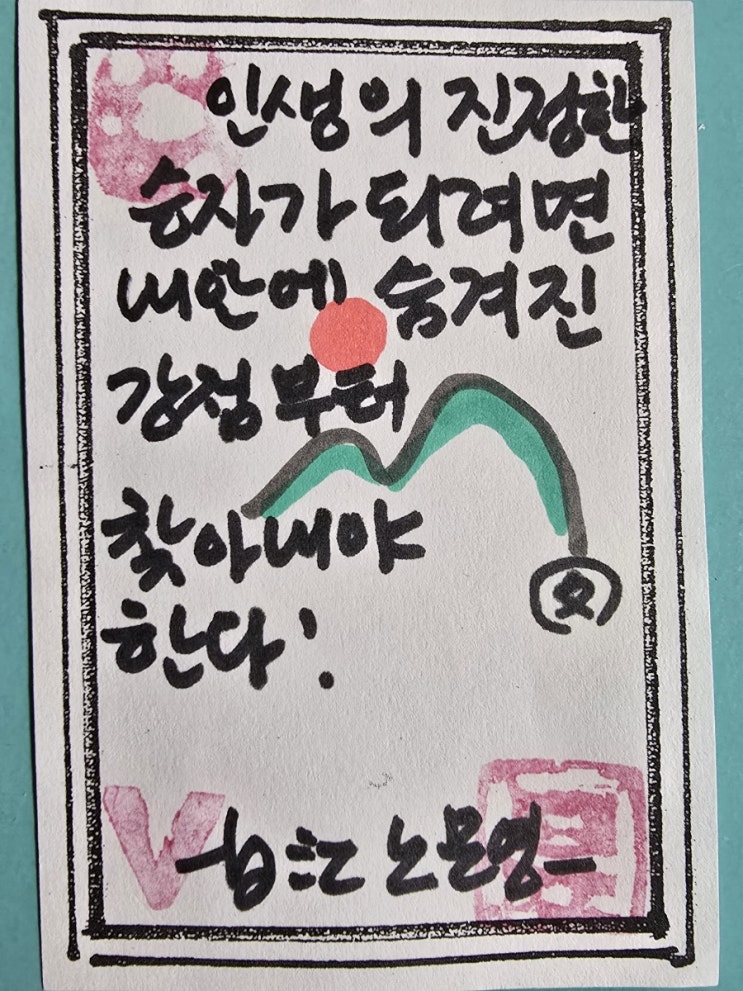 인생의 진정한
승자가 되려면
내안에 숨겨진
강점부터
찾아내야
한다!
노문영-